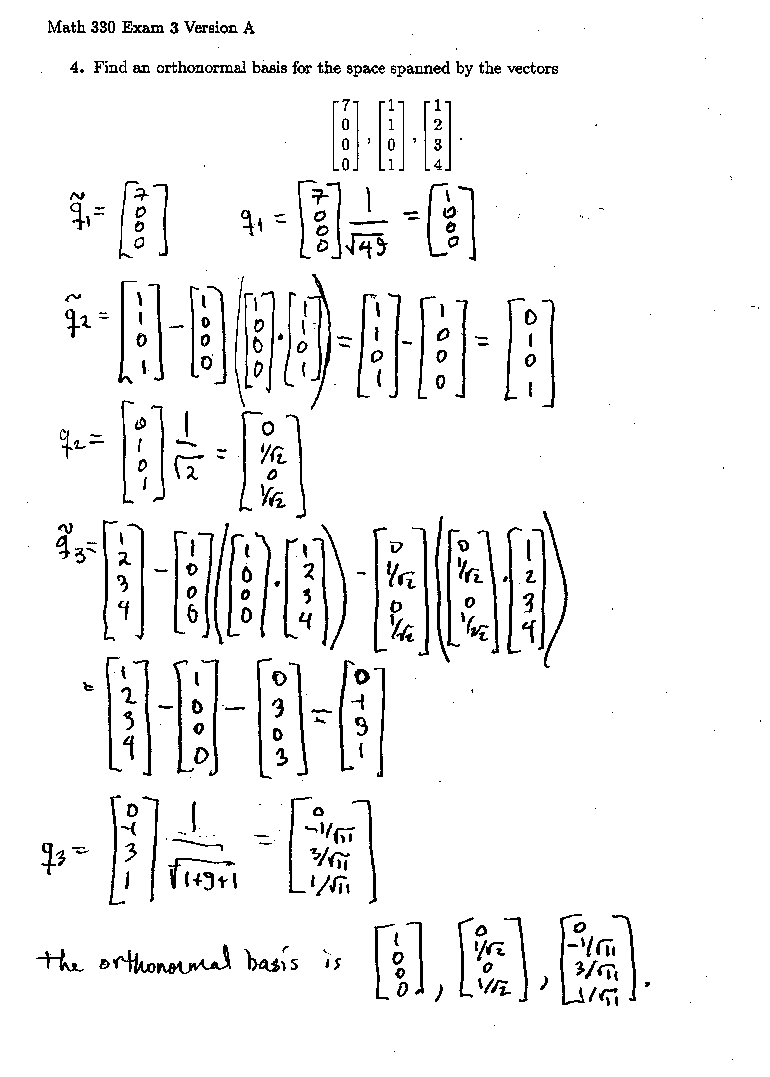 Math 330 Exam 3 Version A
4. Find an orthonormal basis for the space spanned by the vectors
[7 0 0 0], [1 1 0 1], [1 2 3 4].
q̃₁ = [7 0 0 0] q₁ = [7 0 0 0] 1/√49 = [1 0 0 0]
q̃₂ = [1 1 0 1] - [1 0 0 0] ([1 0 0 0] · [1 1 0 1]) = [1 1 0 1] - [1 0 0 0] = [0 1 0 1]
q₂ = [0 1 0 1] 1/√2 = [0 1/√2 0 1/√2]
q̃₃ = [1 2 3 4] - [1 0 0 0] ([1 0 0 0] · [1 2 3 4]) - [0 1/√2 0 1/√2] ([0 1/√2 0 1/√2] · [1 2 3 4])
= [1 2 3 4] - [1 0 0 0] - [0 3 0 3] = [0 -1 3 1]
q₃ = [0 -1 3 1] 1/√1+9+1 = [0 -1/√11 3/√11 1/√11]
the orthonormal basis is [1 0 0 0], [0 1/√2 0 1/√2], [0 -1/√11 3/√11 1/√11].